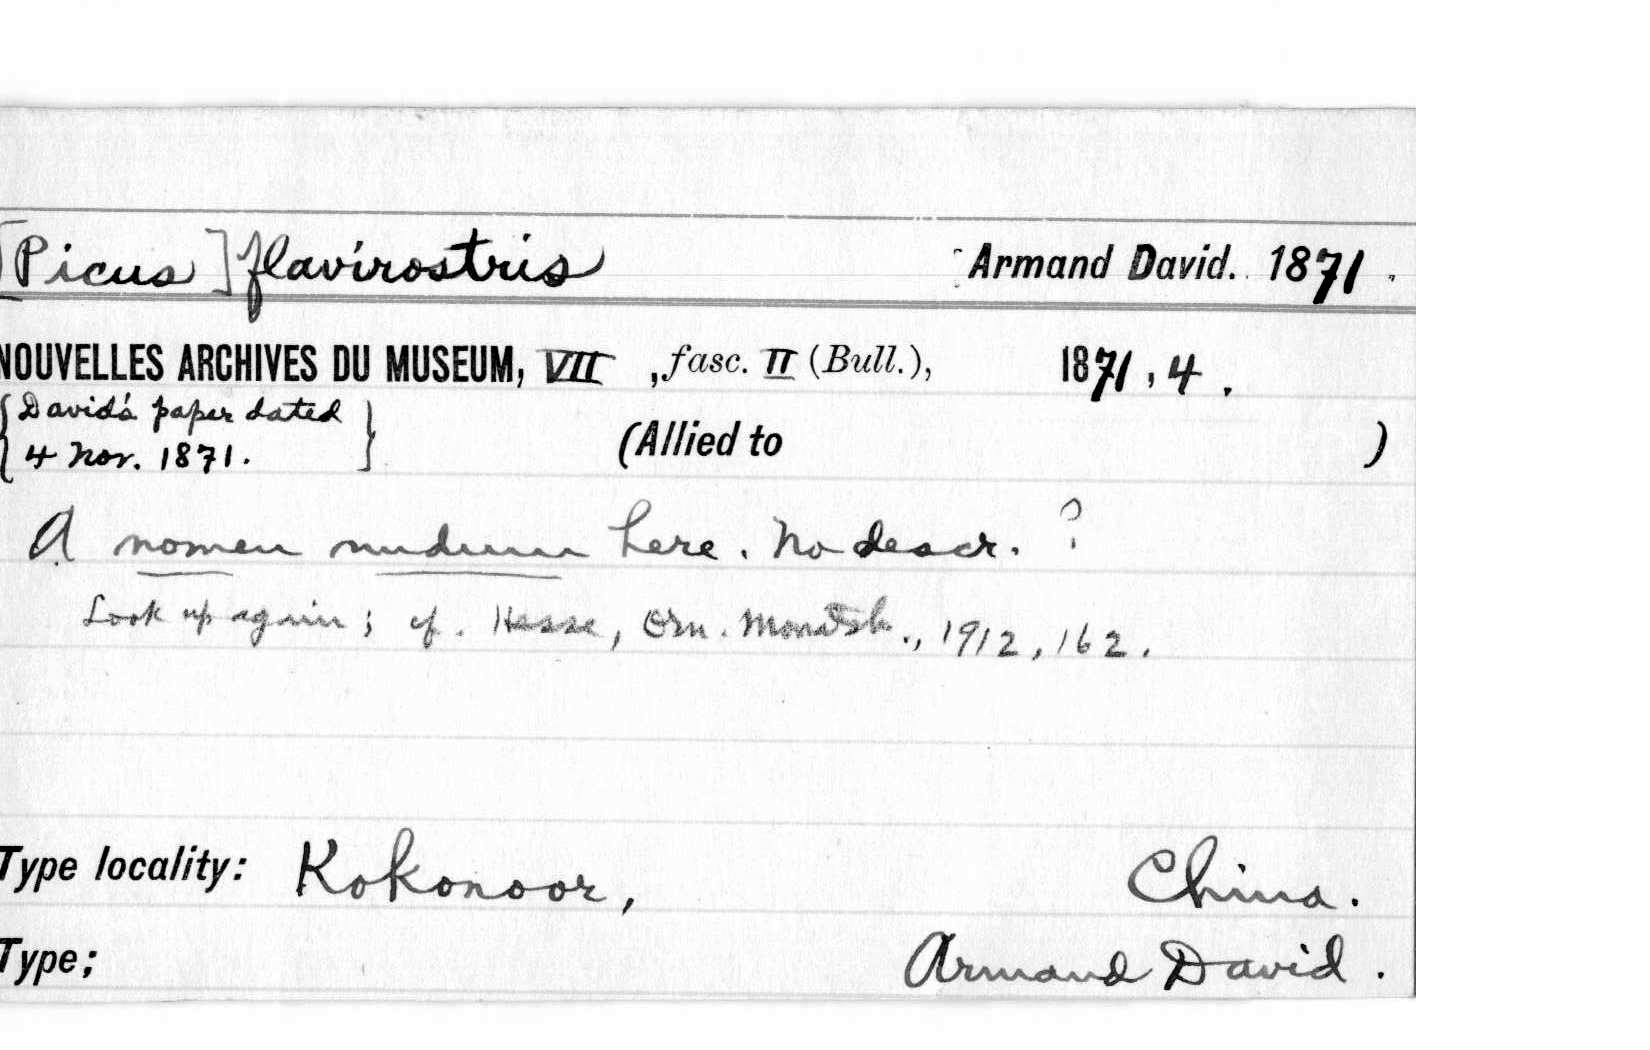 [Picus] flavirostris Armand David. 1871.
NOUVELLES ARCHIVES DU MUSEUM, VII, fasc. II (Bull.), 1871, 4.
{David's paper dated
4 Nov. 1871.}
(Allied to )
A nomen nudum here. No descr. ?
Look up again; cf. Hesse, Orn. Monatsb., 1912, 162.
Type locality: Kokonoor, China.
Type; Armand David.